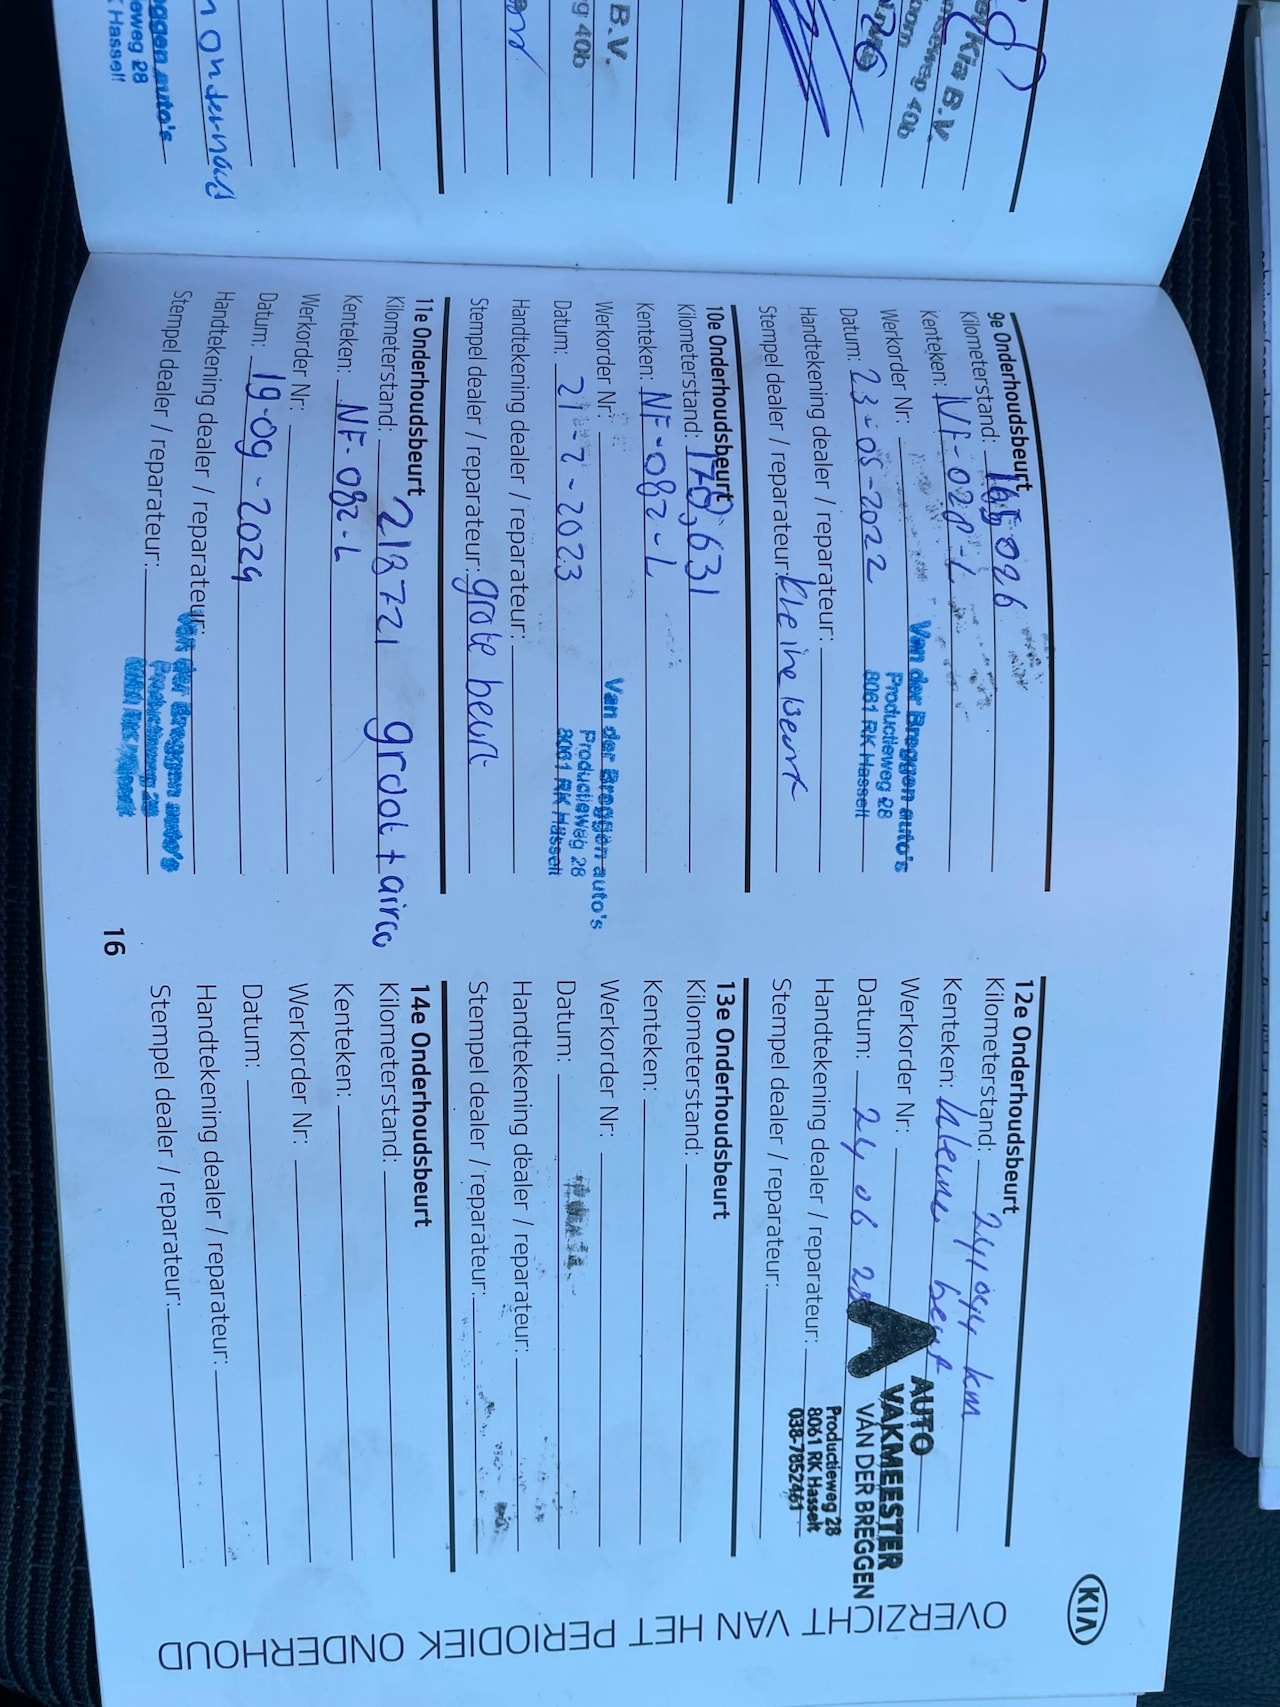 KIA
OVERZICHT VAN HET PERIODIEK ONDERHOUD
9e Onderhoudsbeurt
Kilometerstand: 165 026
Kenteken: NF-028-L
Werkorder Nr:
Datum: 23-05-2022
Handtekening dealer / reparateur:
Stempel dealer / reparateur: kleine beurt
Van der Breggen auto's
Productieweg 28
8061 RK Hasselt
10e Onderhoudsbeurt
Kilometerstand: 178,631
Kenteken: NF-082-L
Werkorder Nr:
Datum: 21-2-2023
Handtekening dealer / reparateur:
Stempel dealer / reparateur: grote beurt
Van der Breggen auto's
Productieweg 28
8061 RK Hasselt
11e Onderhoudsbeurt
Kilometerstand: 218721 groot + airco
Kenteken: NF-082-L
Werkorder Nr:
Datum: 19-09-2024
Handtekening dealer / reparateur:
Stempel dealer / reparateur:
Van der Breggen auto's
Productieweg 28
16
12e Onderhoudsbeurt
Kilometerstand: 241044 km
Kenteken: kleine beurt
Werkorder Nr:
Datum: 24 06 25
Handtekening dealer / reparateur:
Stempel dealer / reparateur:
AUTO
VAKMEESTER
VAN DER BREGGEN
Productieweg 28
8061 RK Hasselt
038-7852461
13e Onderhoudsbeurt
Kilometerstand:
Kenteken:
Werkorder Nr:
Datum:
Handtekening dealer / reparateur:
Stempel dealer / reparateur:
14e Onderhoudsbeurt
Kilometerstand:
Kenteken:
Werkorder Nr:
Datum:
Handtekening dealer / reparateur:
Stempel dealer / reparateur:
Kia B.V.
40b
B.V.
g 40b
onderhoud
ggen auto's
eweg 28
Hasselt